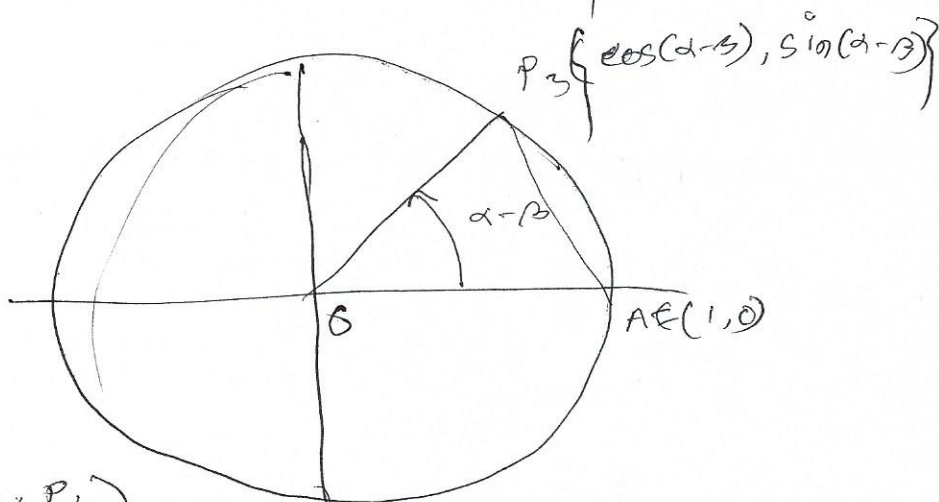 P₃{cos(α-β), sin(α-β)}
α-β
O
A∈(1,0)
P₁)